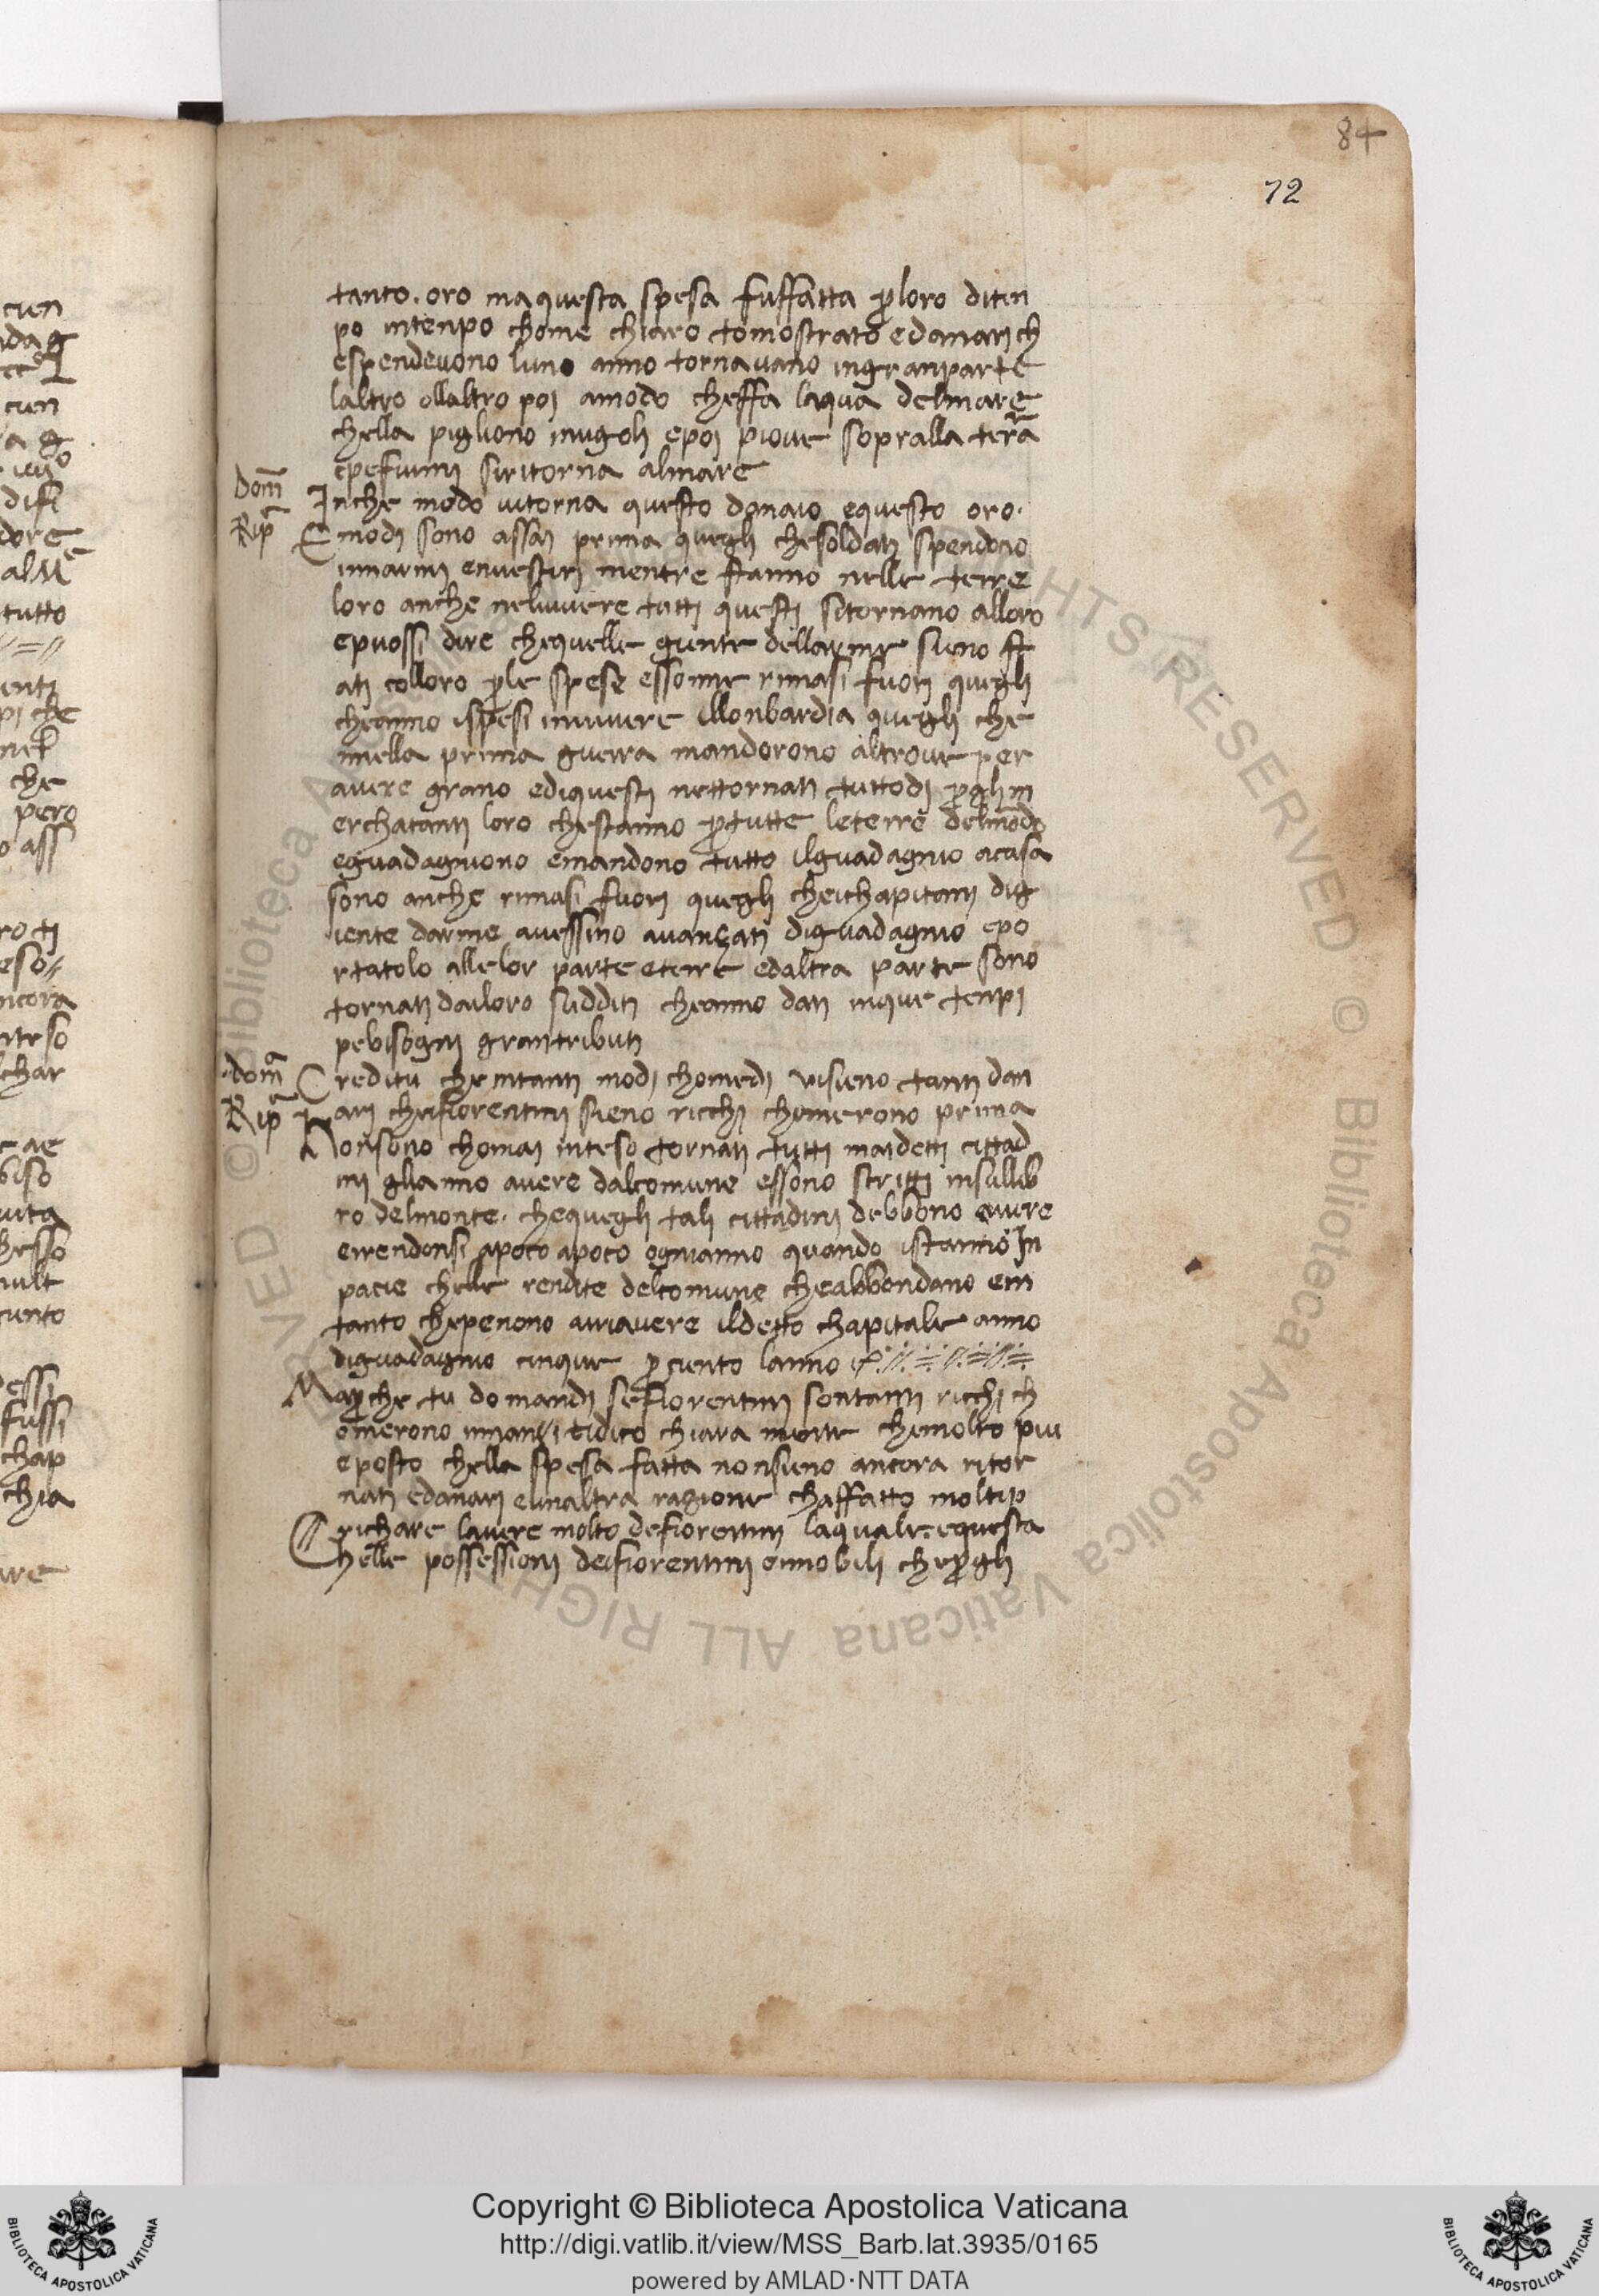 84
72
tanto. oro ma questa spesa fuffatta ꝑ loro diten
po intenpo chome chiaro tomostrato edanarj ch
espendevono luno anno tornavano ingranparte
laltro ollaltro poj amodo cheffa laqua delmare
chella pigliono inugolj epoj piove sopralla terra
epefiumj siritorna almare
Dom̄ Inche modo vitorna questo danaio equesto oro.
Risp̄ Emodj sono assaj prima queglj chesoldatj spendono
innarmj envestirj mentre stanno nelle terre
loro anche nelvivere tuttj questj sitornano alloro
epuossi dire chequelle giente dellarme sieno st
atj colloro ꝑle spese essonne rimasi fuorj queglj
cheanno ispesi invivere illonbardia queglj che
nnella prima guerra mandorono altrove per
avere grano ediquestj nettornatj tuttodj ꝑglj m
erchatantj loro chestanno ꝑtutte leterre delmōdo
eguadagniono emandono tutto ilguadagnio acasa
sono anche rimasi fuorj queglj cheichapitanj dig
iente darme avessino avanzatj diguadagnio epo
rtatolo allelor parte eterre edaltra parte sono
tornatj dailoro sudditj cheanno datj inque tenpj
pebisognj grantributj
dom̄ Creditu che intantj modj chomedj visieno tantj dan
Risp̄ arj cheifiorentinj sieno ricchj chomerono prima
Nonsono chomaj inteso tornatj tuttj maidettj cittad
inj glianno avere dalcomune essono scrittj insullib
ro delmonte. chequeglj talj cittadinj debbono avere
eirendonsi apoco apoco ognianno quando istanno In
pacie chelle rendite delcomune cheabbondano ein
tanto chepenono ariavere ildetto chapitale anno
diguadagnio cinque ꝑ ciento lanno
Maꝑche tu domandj sefiorentinj sontantj ricchj ch
omerono innanzi tidico chiara mente chemolto piu
eposto chella spesa fatta nonsieno ancora ritor
natj edanarj eunaltra ragione chaffatto moltip
richare lavere molto defiorentinj laquale equesta
Chelle possessionj deifiorentinj eimobili cheꝑglj
Copyright © Biblioteca Apostolica Vaticana
http://digi.vatlib.it/view/MSS_Barb.lat.3935/0165
powered by AMLAD·NTT DATA